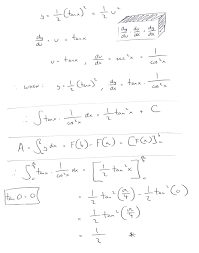 y = 1/2 (tanx)² = 1/2 u²
dy/du = u = tanx
dy/dx = dy/du · du/dx
u = tanx , du/dx = sec²x = 1/cos²x
∴ when: y = 1/2 (tanx)² , dy/dx = tanx · 1/cos²x
∴ ∫ tanx · 1/cos²x dx = 1/2 tan²x + C
A = ∫ y dx = F(b) - F(a) = [F(x)]
∴ ∫₀ tanx · 1/cos²x dx = [1/2 tan²x]₀
tan 0 = 0
= 1/2 tan²(π/4) - 1/2 tan²(0)
= 1/2 tan²(π/4)
= 1/2